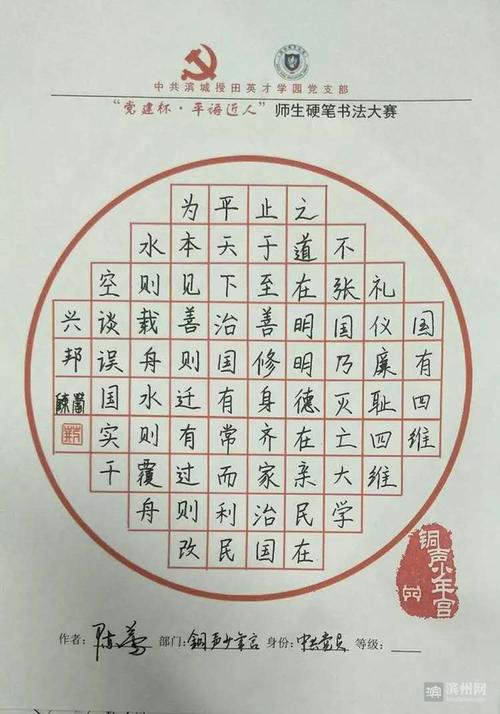 中共滨城授田英才学园党支部
“党建杯·平语近人”师生硬笔书法大赛
国有四维
礼仪廉耻四维
不张国乃灭亡大学
之道在明明德在亲民在
止于至善修身齐家治国
平天下治国有常而利民
为本见善则迁有过则改
水则载舟水则覆舟
空谈误国实干
兴邦
铜声少年宫
作者: 陈 部门: 铜声少年宫 身份: 中共党员 等级:
滨州网